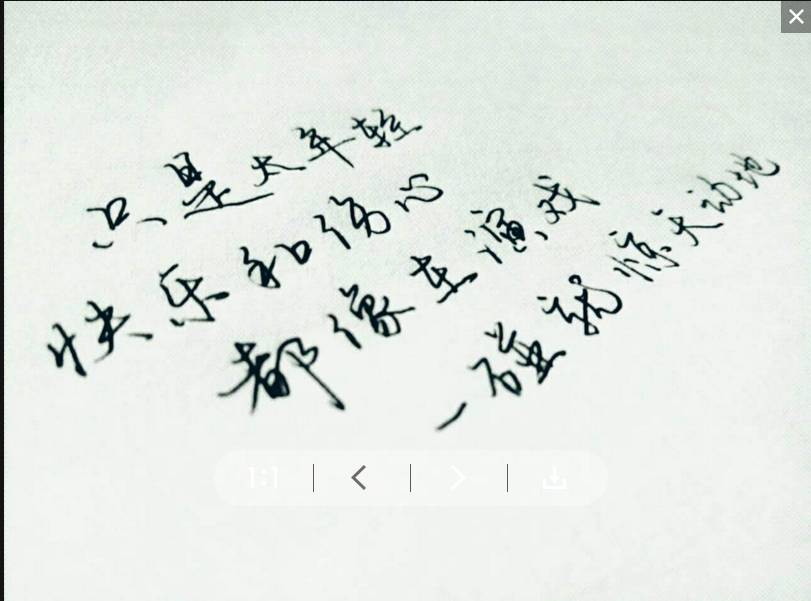 只是太年轻
快乐和伤心
都像在演戏
一碰就惊天动地
1:1